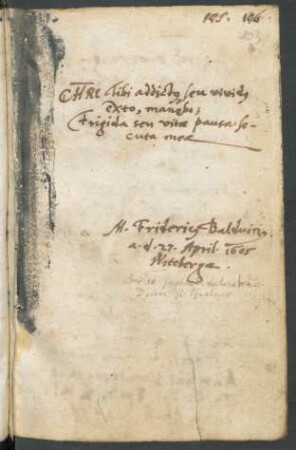 195. 196.
CHRE tibi addictq seu vividq
Exto, manebo;
Frigida seu vitæ pausa se-
cuta meæ
M. Fridericq Balduinq
a.d. 27. April. 1605
Witebergæ.